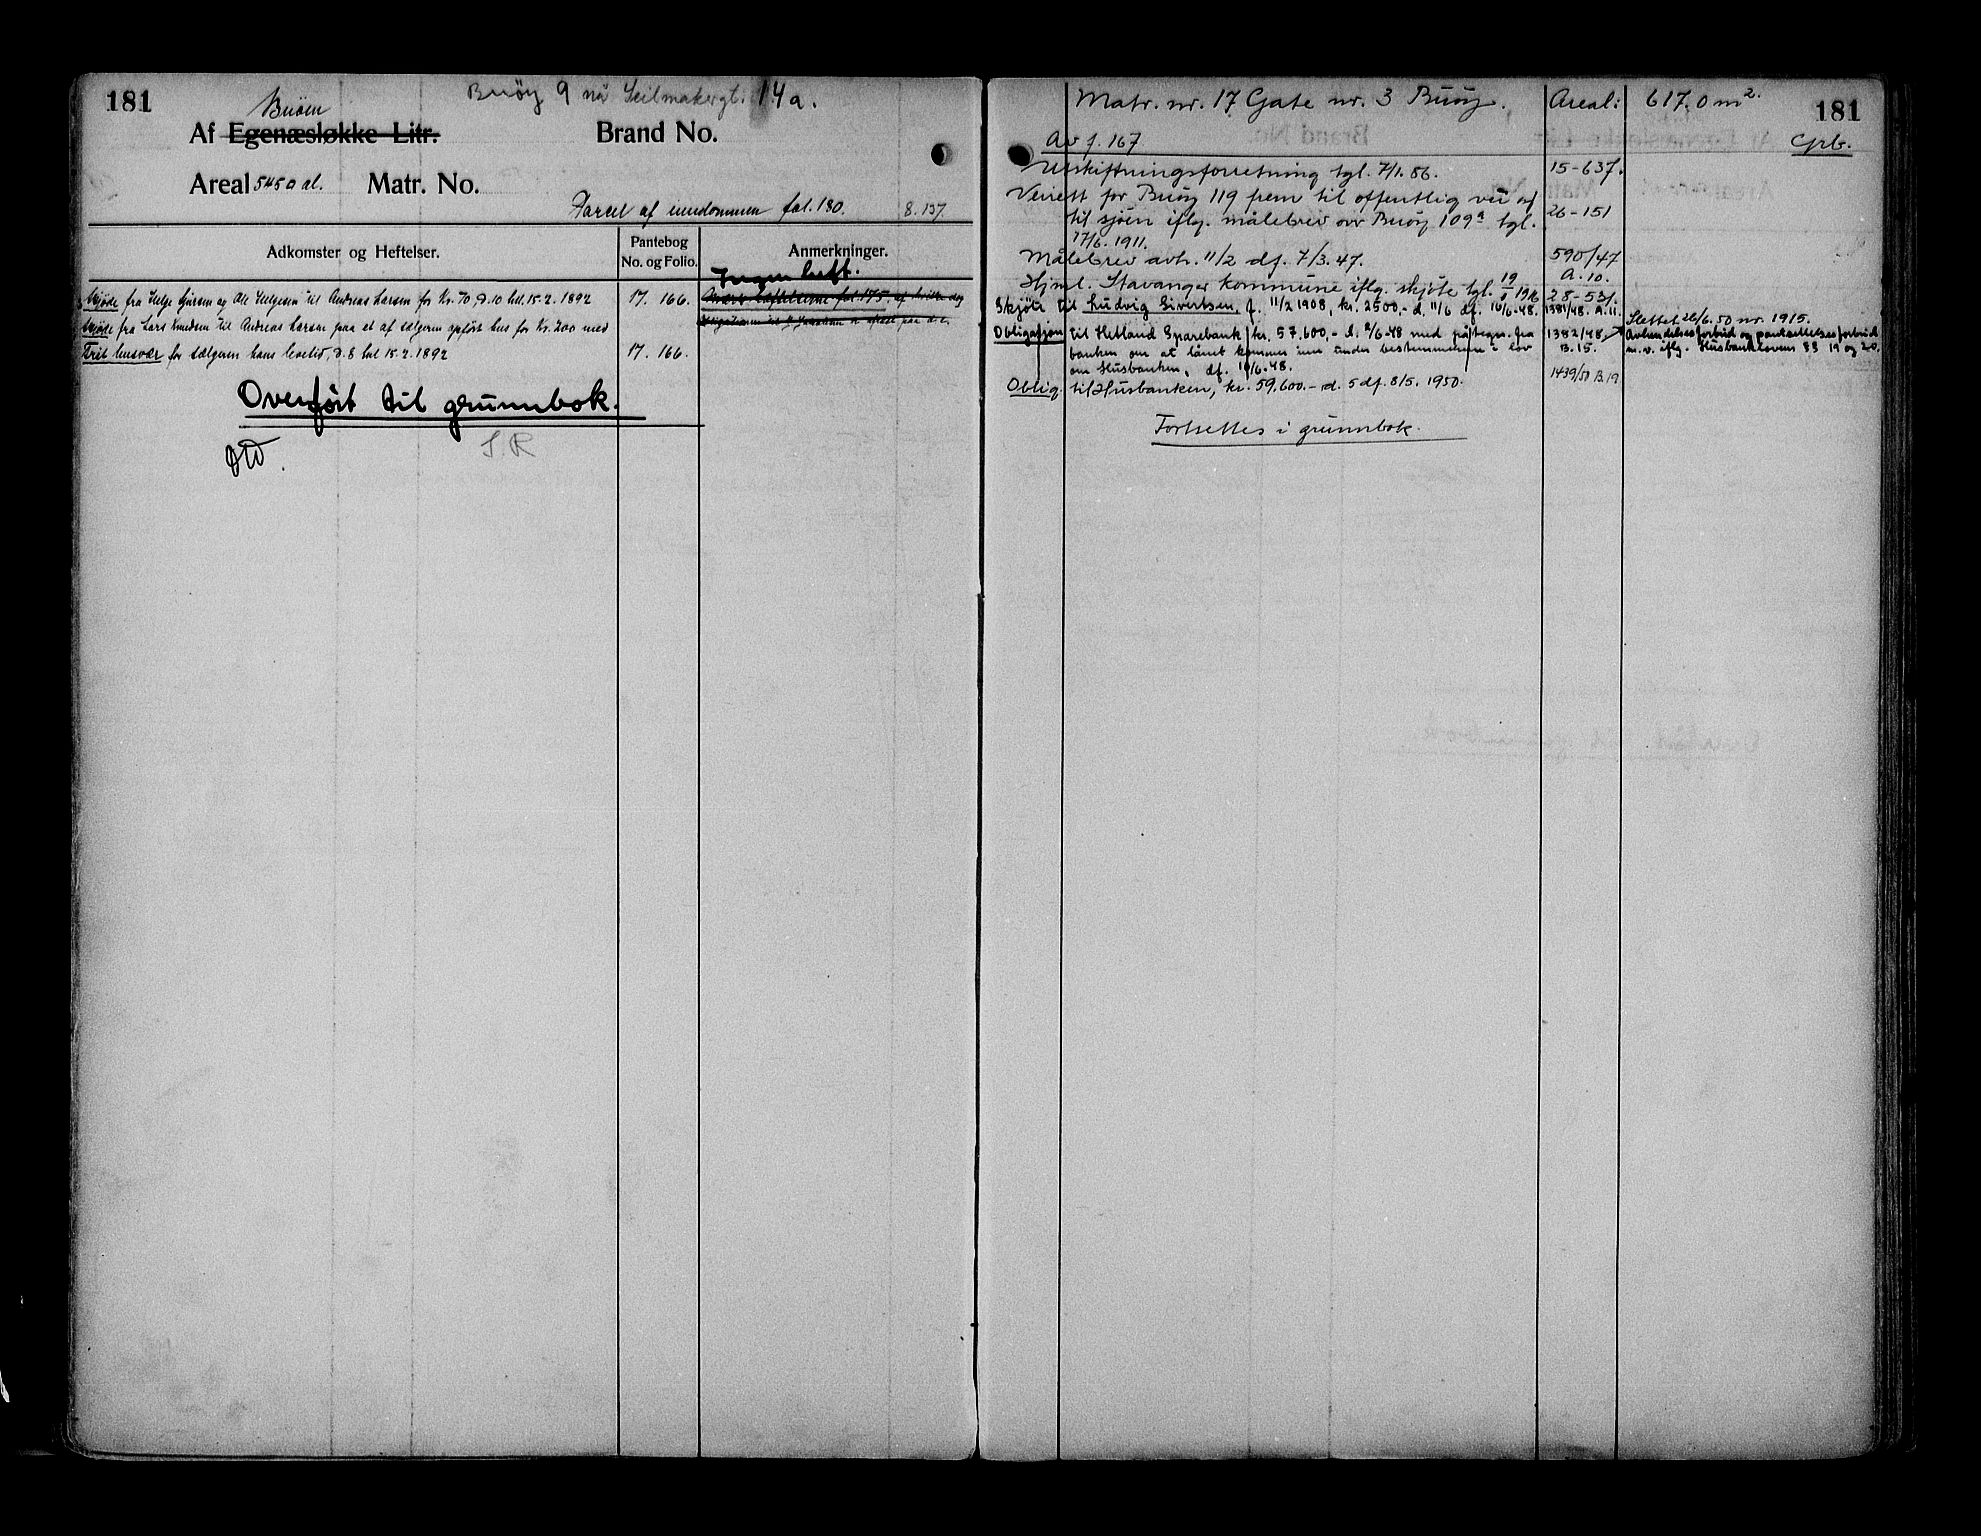 181
Buøy 9 nå Seilmakergt. 14a.
Buöen
Af Egenæsløkke Litr.
Brand No.
Areal 5450 al. Matr. No.
Parcel af eiendommen fol. 180. 8. 137.
Adkomster og Heftelser.
Pantebog
No. og Folio.
Anmerkninger.
Ingen heft.
Skjøde fra Helge Gjursen og Ole Helgesen til Andreas Larsen for Kr. 70, D. 10 htl. 15.2.1892 17. 166.
Skjøde fra Lars Knudsen til Andreas Larsen paa et af sælgeren opført hus for Kr. 200 med
Frit husvær for sælgeren hans levetid, D. 8 htl 15.2.1892 17. 166.
Overført til grunnbok.
S.R
Matr. nr. 17 Gate nr. 3 Buøy. Areal: 617.0 m².
181
Av f. 167
Grb.
Utskiftningsforretning tgl. 7/1. 86. 15-637.
Veirett for Buøy 119 frem til offentlig vei og
til sjøen iflg. målebrev over Buøy 109a tgl. 26-151
17/6. 1911.
Målebrev avh. 11/2 df. 7/3. 47. 590/47
A. 10.
Hjml. Stavanger kommune iflg. skjøte tgl. 19/1 1916 28-531.
Skjøte til Ludvig Sivertsen, f. 11/2 1908, kr. 2500,- d. 11/6 df. 16/6-48. 1381/48. A. 11.
Slettet 26/6. 50 nr. 1915.
Obligasjon til Hetland Sparebank, kr. 57.600,- d. 2/6-48 med påtegn. fra 1382/48.
banken om at lånet kommer inn under bestemmelsen i lov B. 15.
om Husbanken, df. 16/6-48.
Avhendelsesforbud og pantsettelsesforbud
m.v. iflg. Husbanklovens §§ 19 og 20.
Oblig. til Husbanken, kr. 59.600.- d. 5 df. 8/5. 1950. 1439/50 B. 19
Fortsettes i grunnbok.